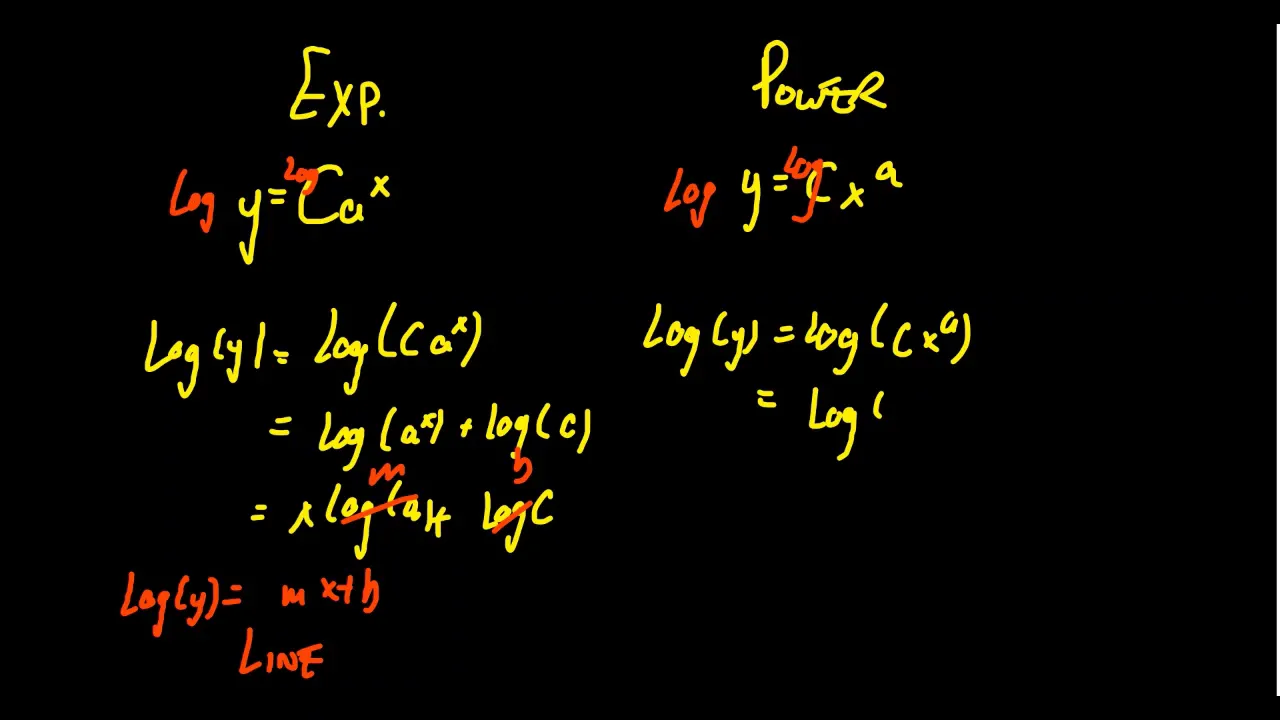 Exp.
log y = log C a^x
log(y) = log(C a^x)
= log(a^x) + log(C)
m b
= x log(a) + log C
log(y) = m x + b
LINE
POWER
log y = log C x^a
log(y) = log(C x^a)
= log(